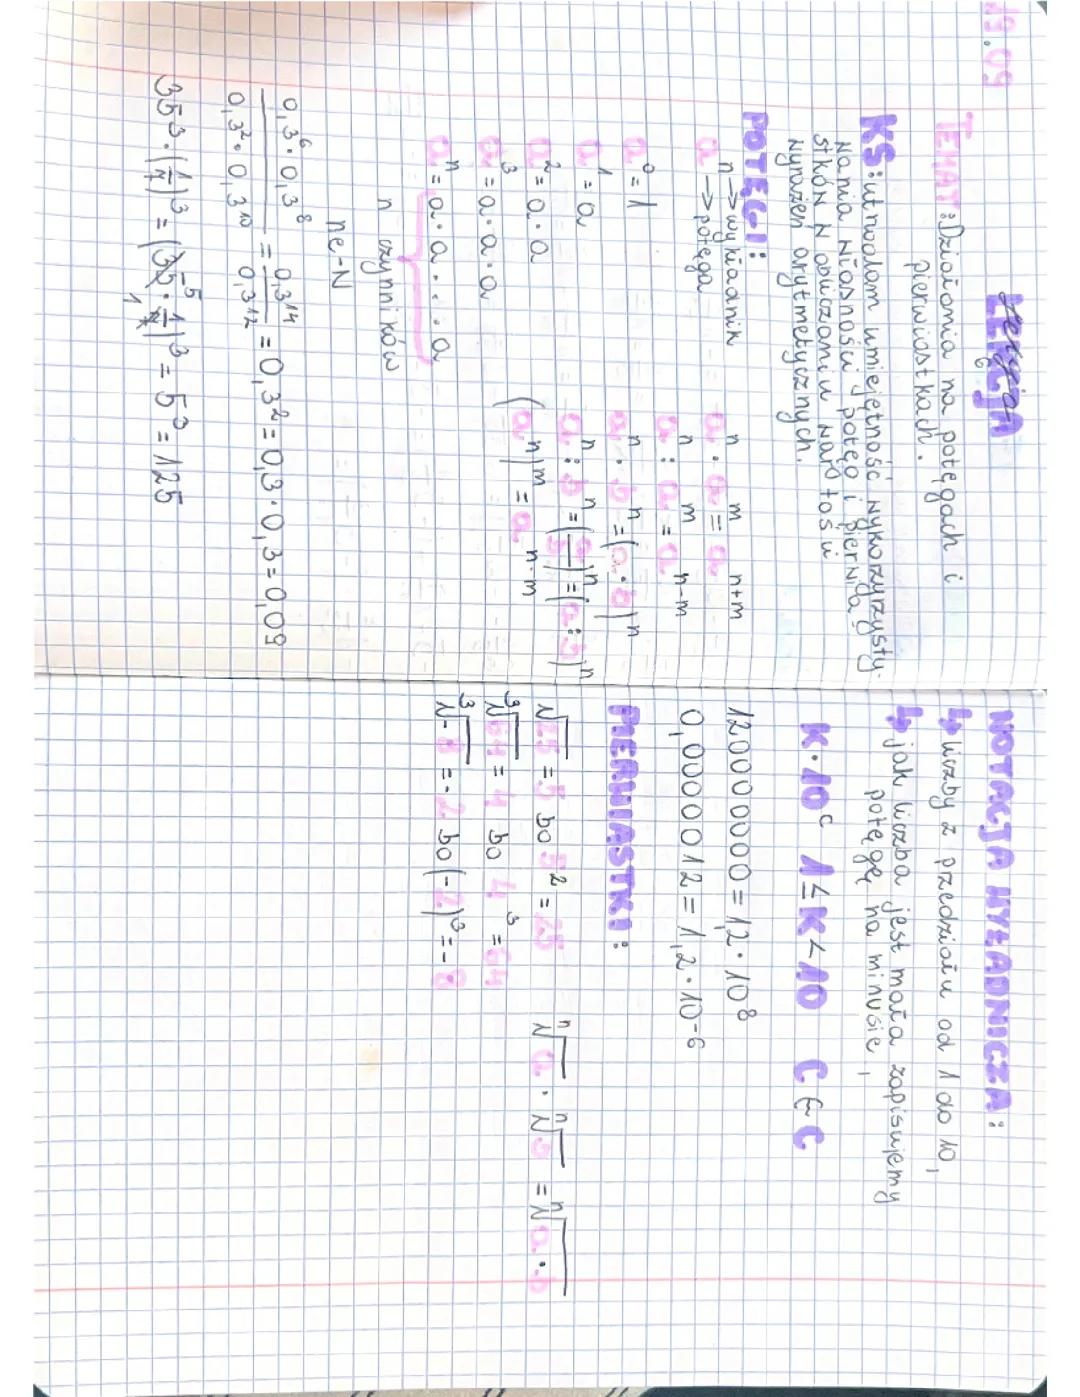 19.09
Lekcja
6
TEMAT: Działania na potęgach i
pierwiastkach.
KS: utrwalam umiejętność wykorzyrzysty-
wania własności potęg i pierwia-
stków w obliczaniu wartości
wyrażeń arytmetycznych.
POTĘGI:
n → wykładnik
a → potęga
a⁰ = 1
a¹ = a
a² = a · a
a³ = a · a · a
aⁿ = a · a · ... · a
n czynników
n ∈ N
aⁿ · aᵐ = aⁿ⁺ᵐ
aⁿ : aᵐ = aⁿ⁻ᵐ
aⁿ · bⁿ = (a · b)ⁿ
aⁿ : bⁿ = (a/b)ⁿ = (a : b)ⁿ
(aⁿ)ᵐ = aⁿ·ᵐ
0,3⁶ · 0,3⁸ / 0,3² · 0,3¹⁰ = 0,3¹⁴ / 0,3¹² = 0,3² = 0,3 · 0,3 = 0,09
35³ · (1/7)³ = (35 · 1/7)³ = 5³ = 125
NOTACJA WYKŁADNICZA:
↳ liczby z przedziału od 1 do 10,
↳ jak liczba jest mała zapisujemy
potęgę na minusie,
K · 10ᶜ 1 ≤ K < 10 C ∈ C
120000000 = 1,2 · 10⁸
0,0000012 = 1,2 · 10⁻⁶
PIERWIASTKI:
√25 = 5 bo 5² = 25
³√64 = 4 bo 4³ = 64
³√-8 = -2 bo (-2)³ = -8
ⁿ√a · ⁿ√b = ⁿ√a · b